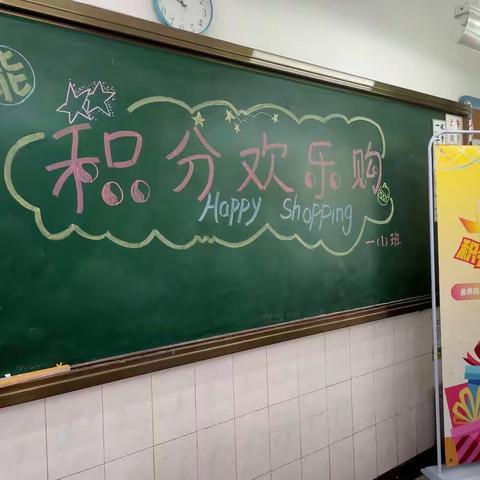 能
积分欢乐购
Happy shopping
一(1)班
积